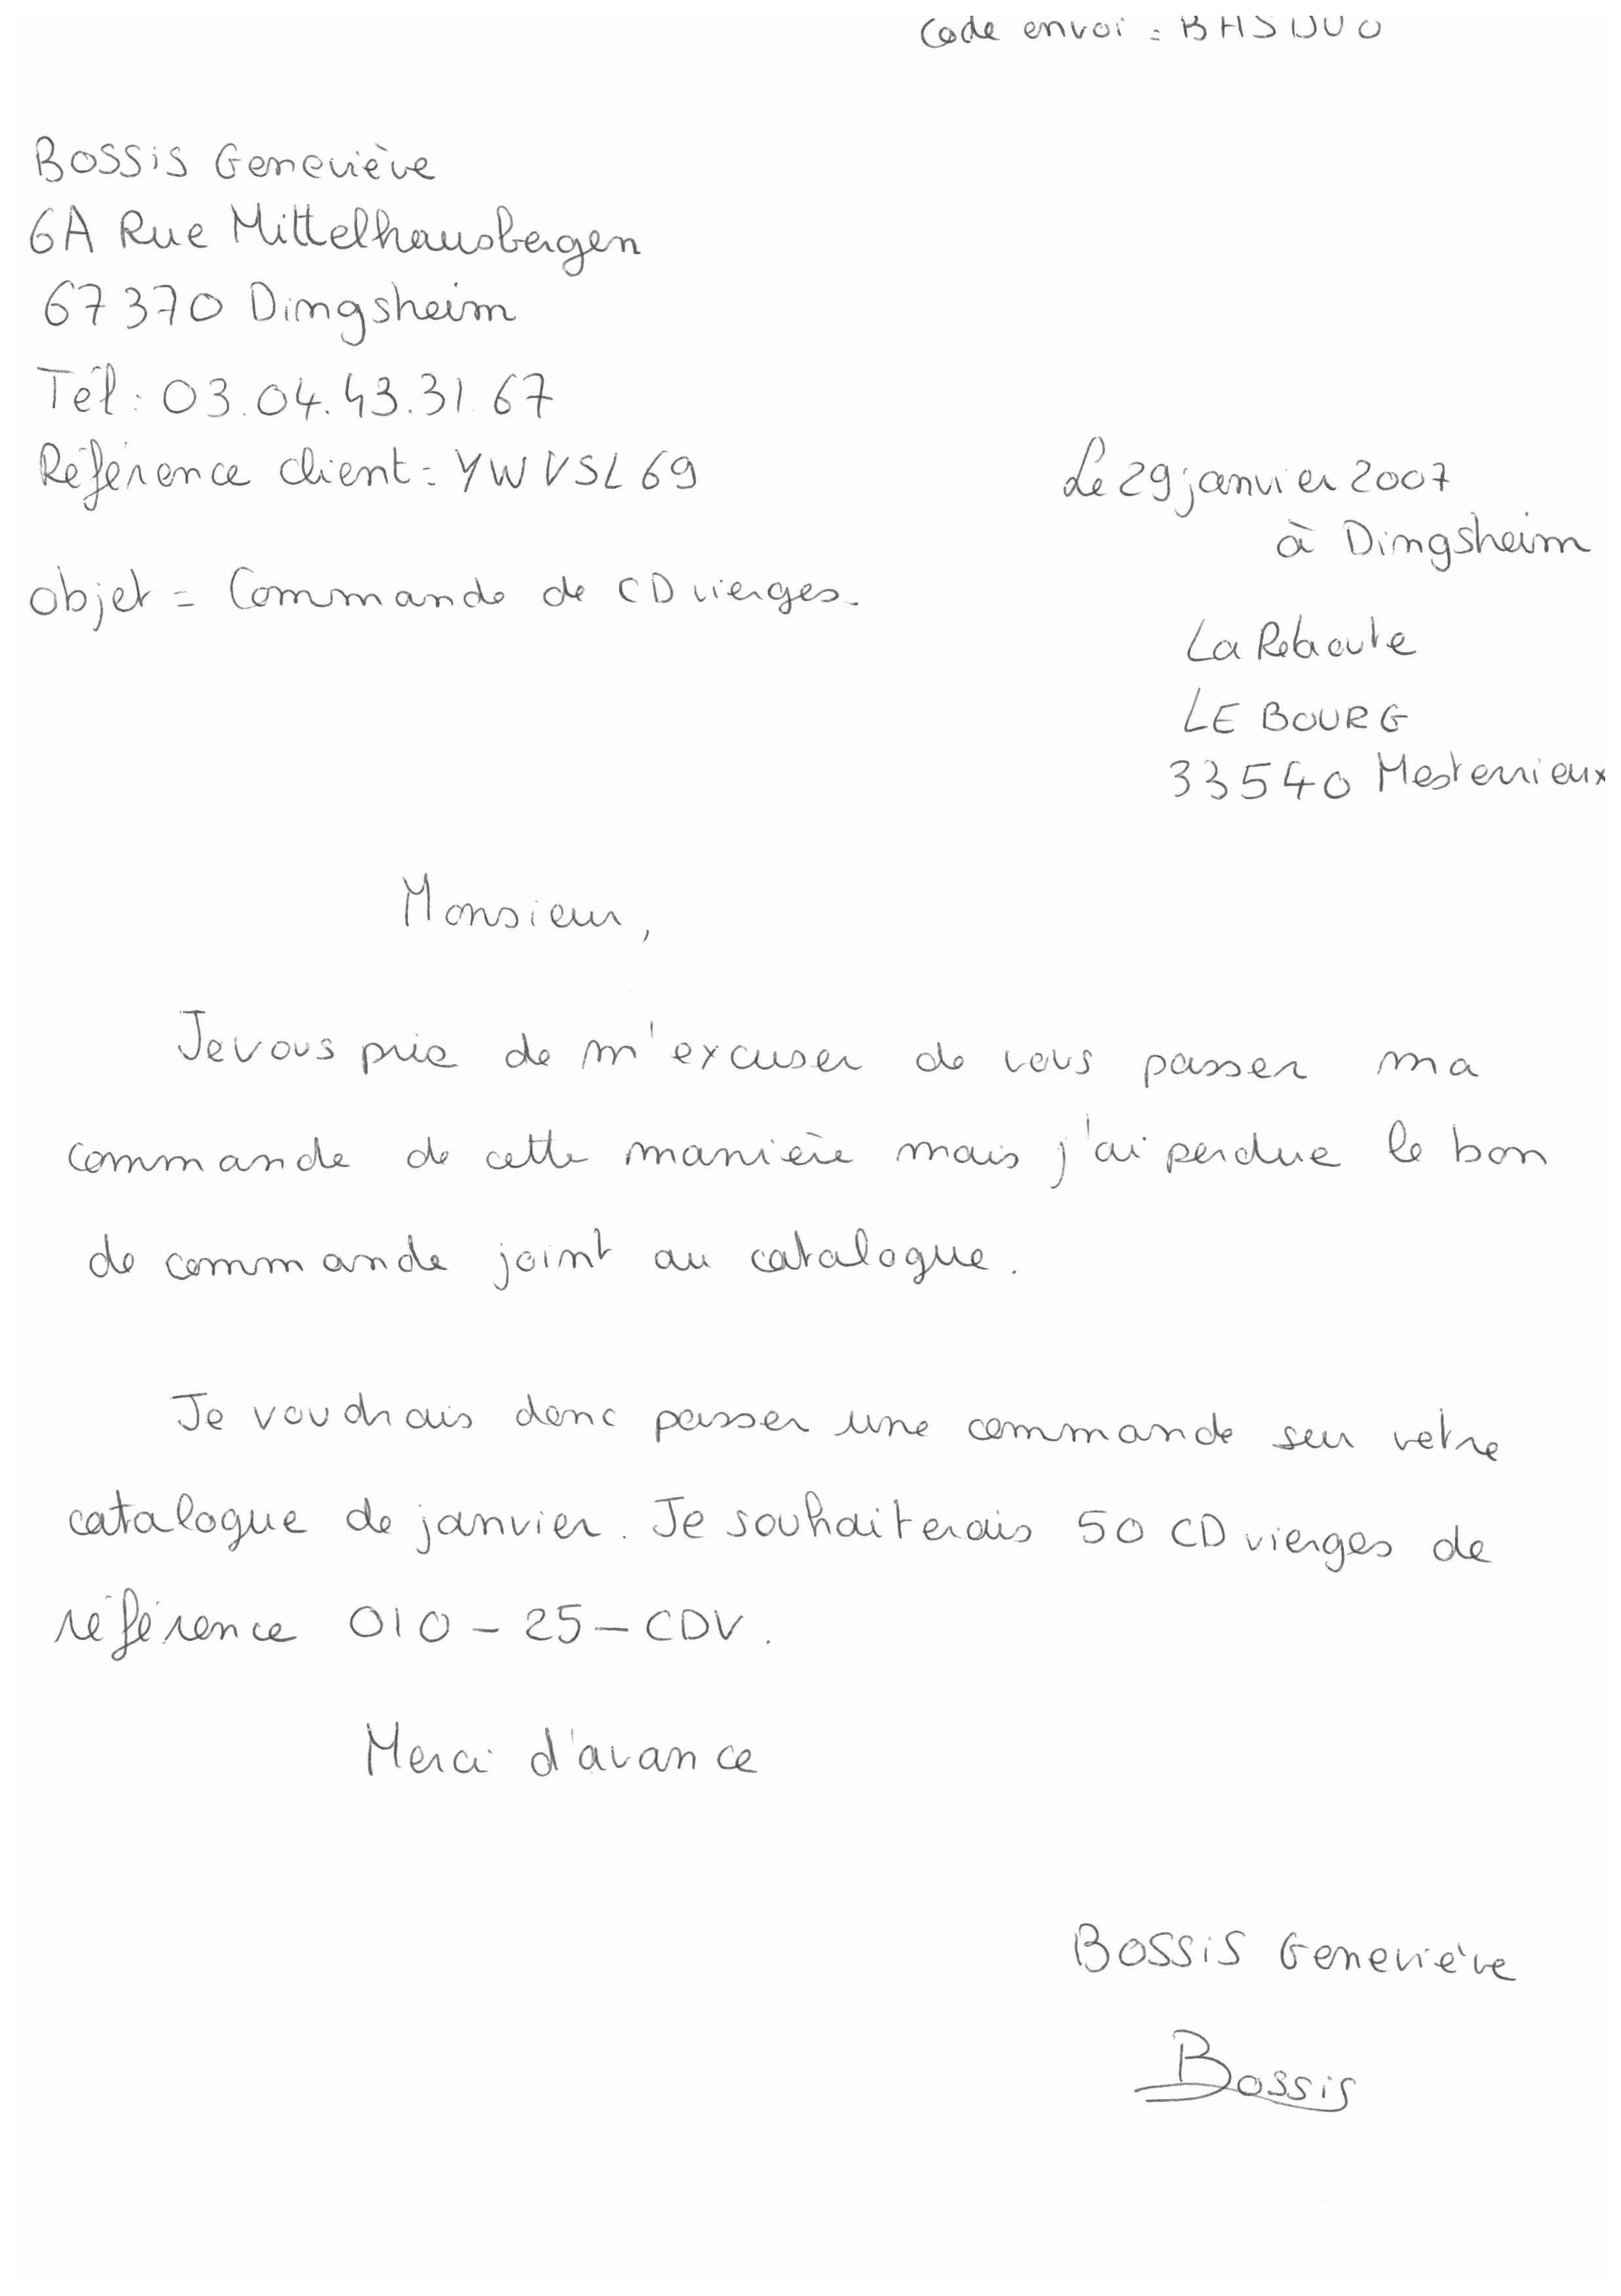 Code envoi :
Bossis Geneviève
6A Rue Mittelhausbergen
67370 Dingsheim
Tél : 03.04.43.31.67
Référence client : YWVSL69
Le 29 janvier 2007
à Dingsheim
objet = Commande de CD vierges.
La Reboute
LE BOURG
33540 Mesterrieux
Monsieur,
Je vous prie de m'excuser de vous passer ma
commande de cette manière mais j'ai perdue le bon
de commande joint au catalogue.
Je voudrais donc passer une commande sur votre
catalogue de janvier. Je souhaiterais 50 CD vierges de
référence 010-25-CDV.
Merci d'avance
BOSSiS Geneviève
Bossis